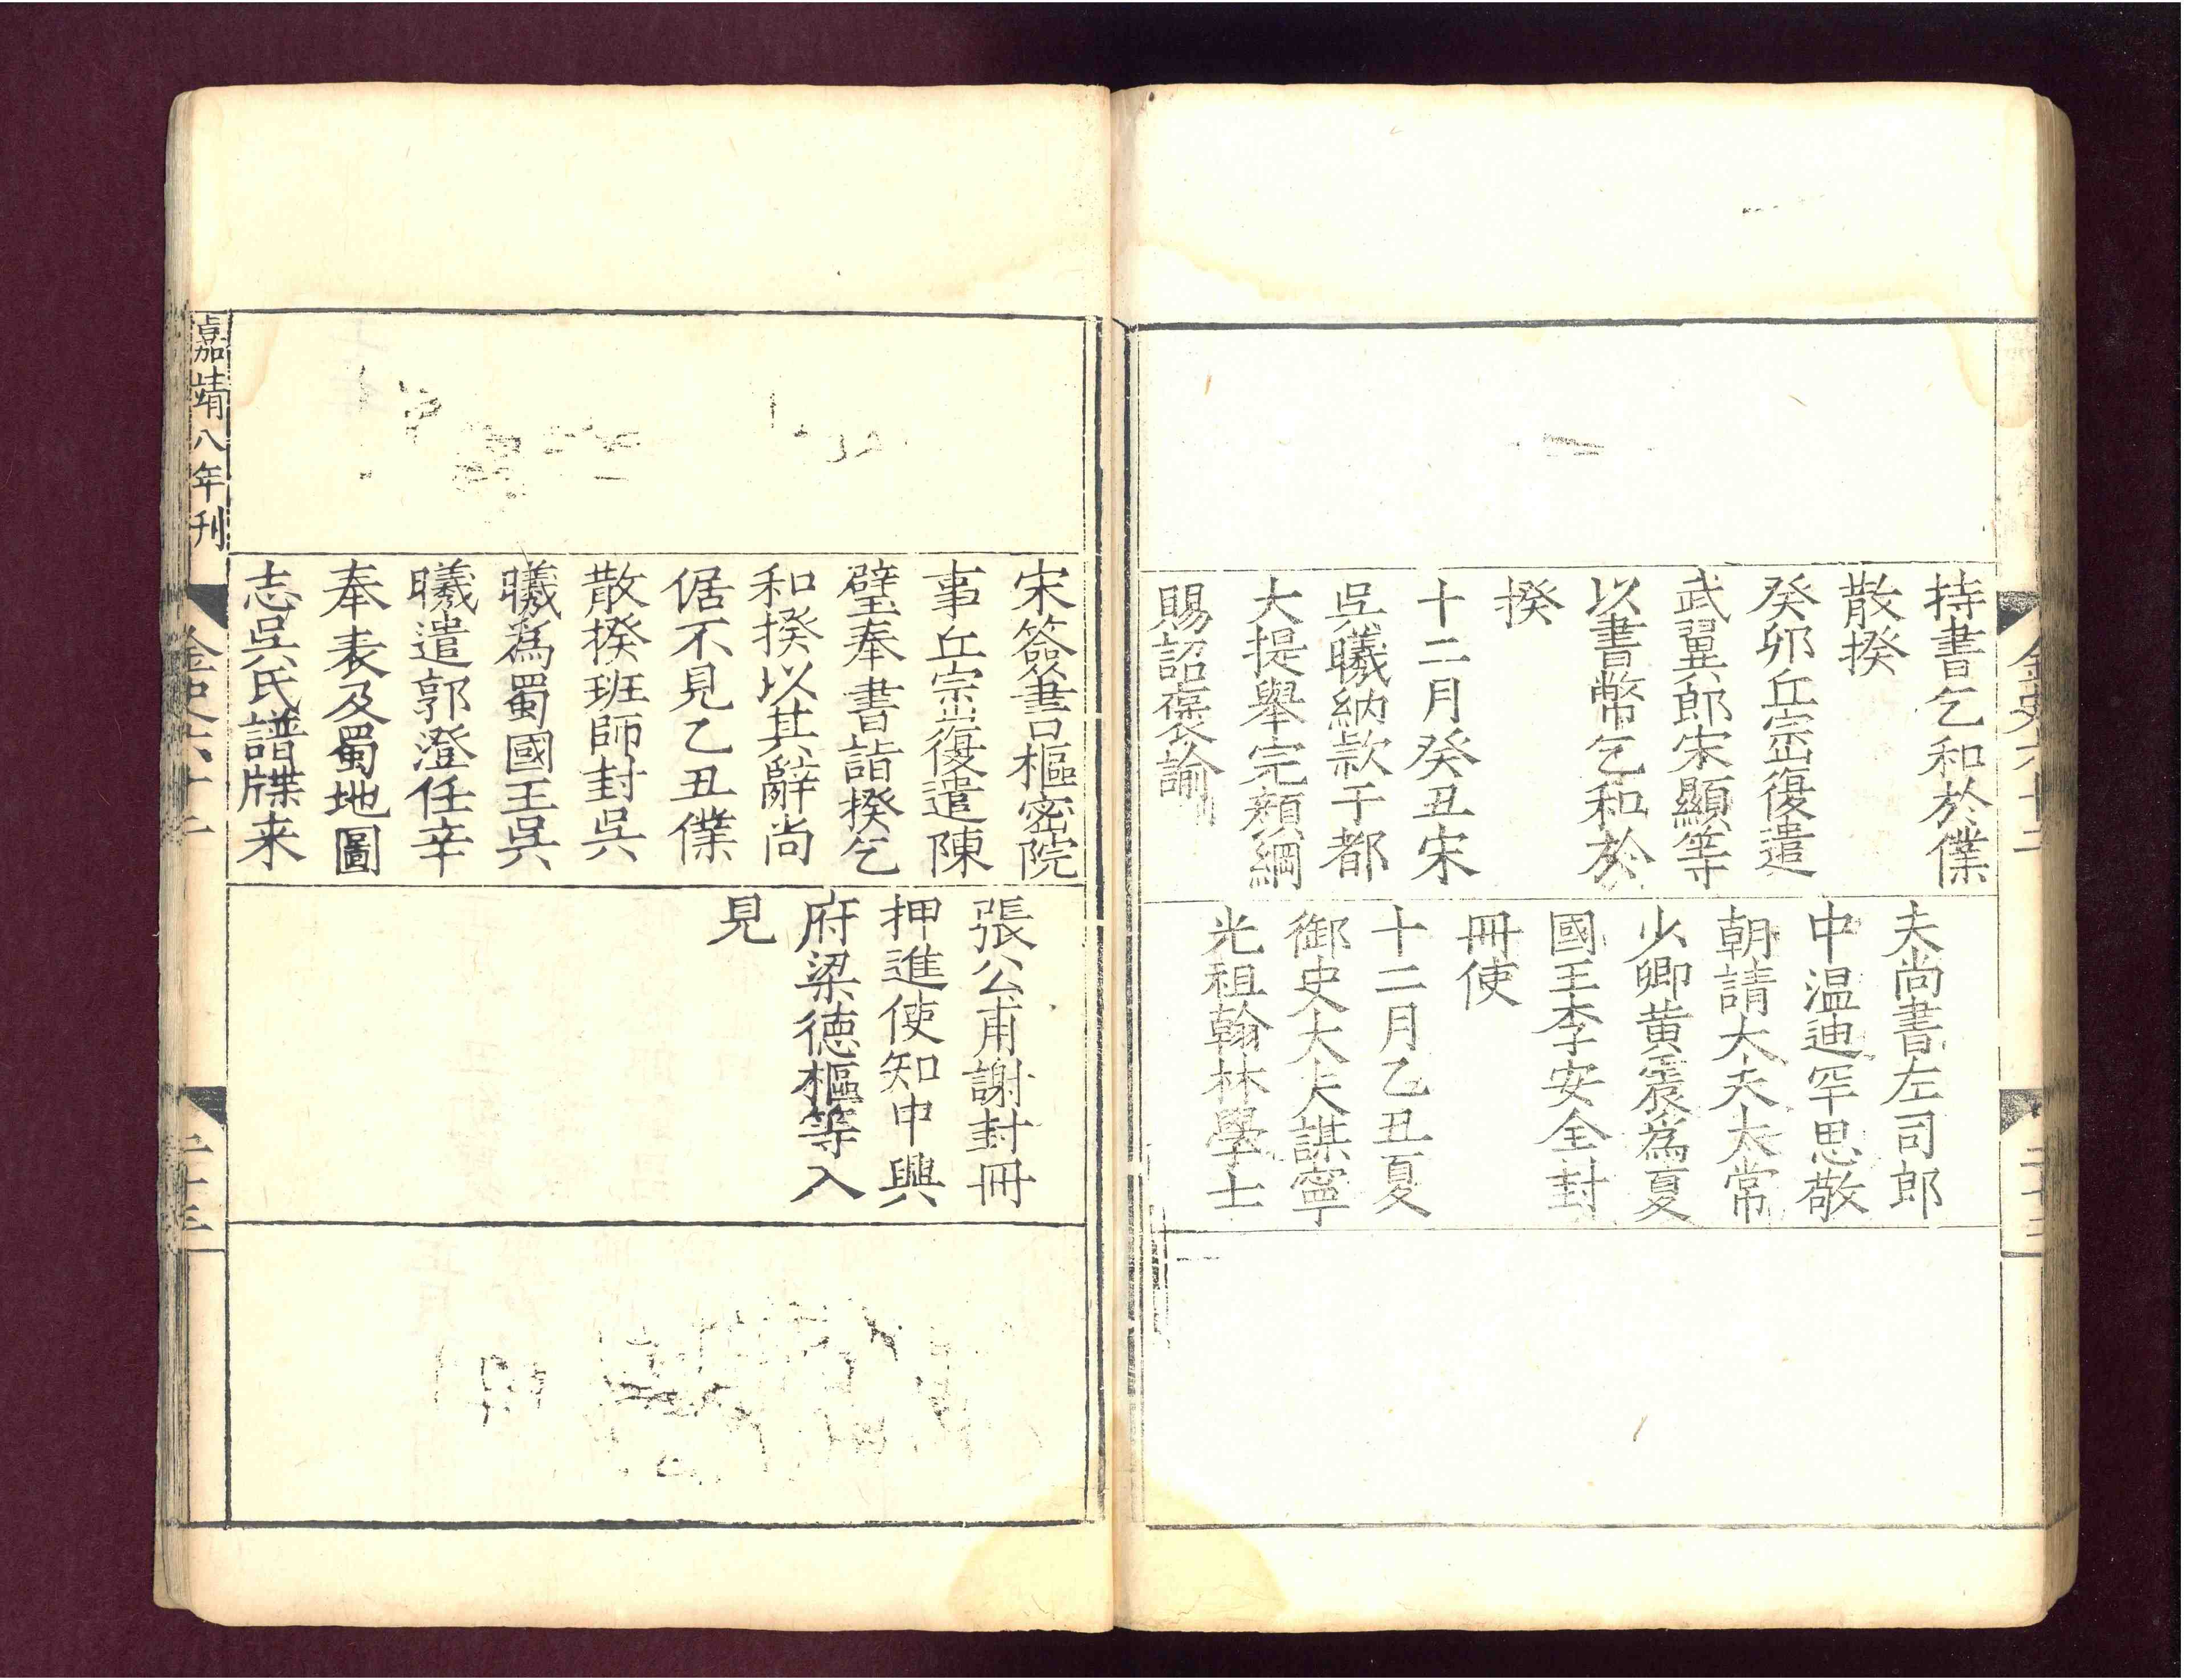 持書乞和於僕
散揆
癸卯丘崈復遣
武翼郎宋顯等
以書幣乞和於
揆
十二月癸丑宋
吳曦納款于都
大提舉完顏綱
賜詔褒諭
夫尚書左司郎
中温迪罕思敬
朝請大夫太常
少卿黄震為夏
國王李安全封
冊使
十二月乙丑夏
御史大夫謀寧
光祖翰林學士
宋簽書樞密院
事丘崈復遣陳
璧奉書詣揆乞
和揆以其辭尚
倨不見乙丑僕
散揆班師封吳
曦為蜀國王吳
曦遣郭澄任辛
奉表及蜀地圖
志吳氏譜牒来
張公甫謝封冊
押進使知中興
府梁德樞等入
見
嘉靖八年刊
金史六十二
二十三